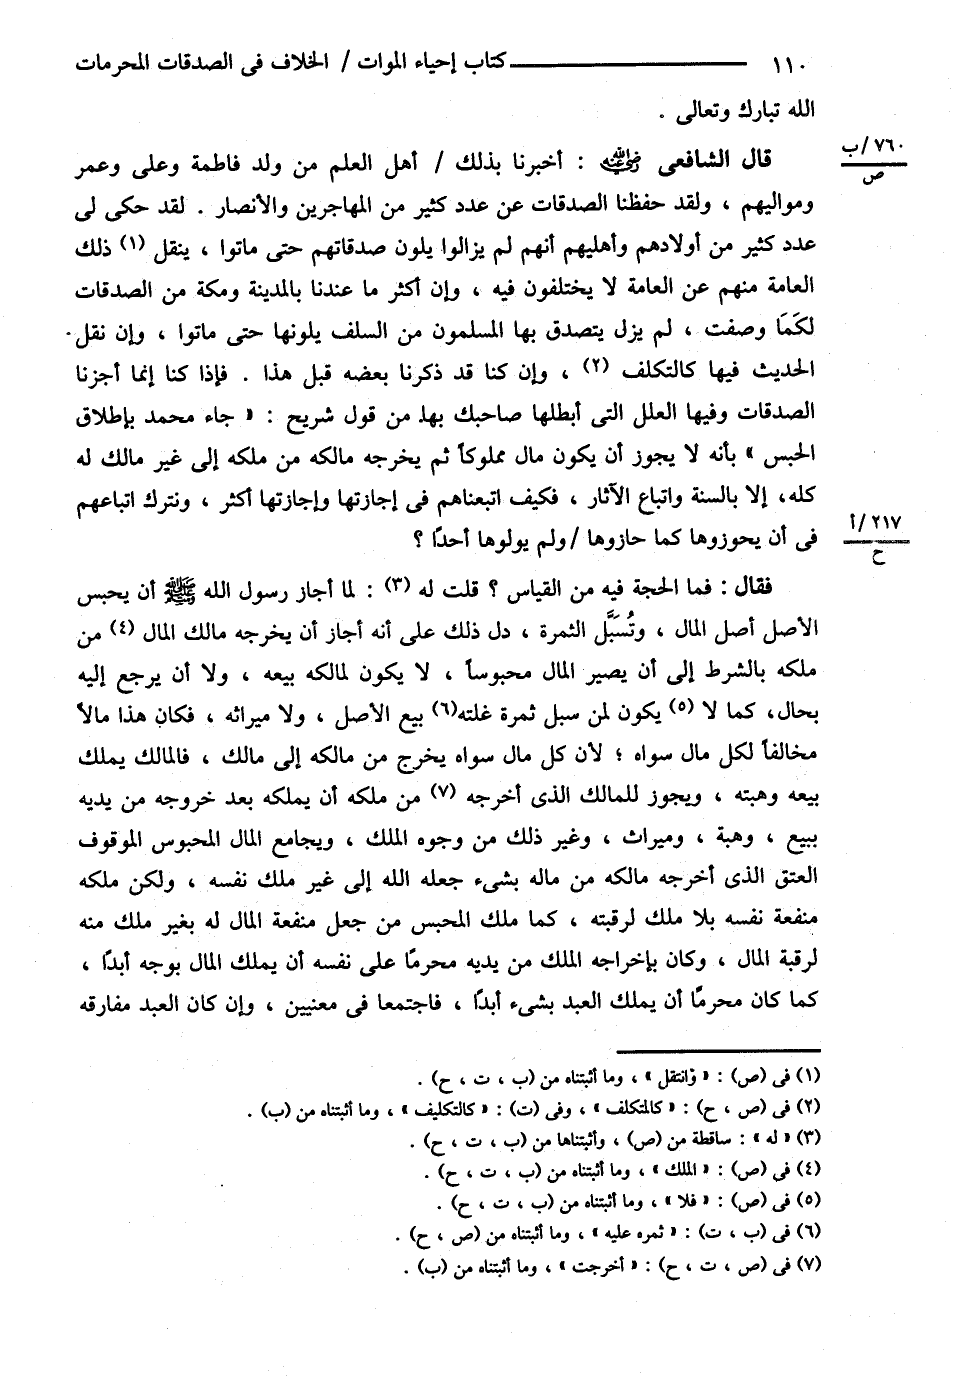 ١١٠ ــــــــــــــ كتاب إحياء الموات / الخلاف فى الصدقات المحرمات
الله تبارك وتعالى .
٧٦٠/ب
ص
قال الشافعى رضي الله عنه : أخبرنا بذلك / أهل العلم من ولد فاطمة وعلى وعمر
ومواليهم ، ولقد حفظنا الصدقات عن عدد كثير من المهاجرين والأنصار . لقد حكى لى
عدد كثير من أولادهم وأهليهم أنهم لم يزالوا يلون صدقاتهم حتى ماتوا ، ينقل (١) ذلك
العامة منهم عن العامة لا يختلفون فيه ، وإن أكثر ما عندنا بالمدينة ومكة من الصدقات
لكَمَا وصفت ، لم يزل يتصدق بها المسلمون من السلف يلونها حتى ماتوا ، وإن نقل
الحديث فيها كالتكلف (٢) ، وإن كنا قد ذكرنا بعضه قبل هذا . فإذا كنا إنما أجزنا
الصدقات وفيها العلل التى أبطلها صاحبك بها من قول شريح : « جاء محمد بإطلاق
الحبس » بأنه لا يجوز أن يكون مال مملوكاً ثم يخرجه مالكه من ملكه إلى غير مالك له
كله، إلا بالسنة واتباع الآثار ، فكيف اتبعناهم فى إجازتها وإجازتها أكثر ، ونترك اتباعهم
٢١٧/أ
ح
فى أن يحوزوها كما حازوها /ولم يولوها أحدًا ؟
فقال : فما الحجة فيه من القياس ؟ قلت له (٣) : لما أجاز رسول الله ﷺ أن يحبس
الأصل أصل المال ، وتُسَبَّل الثمرة ، دل ذلك على أنه أجاز أن يخرجه مالك المال (٤) من
ملكه بالشرط إلى أن يصير المال محبوساً ، لا يكون لمالكه بيعه ، ولا أن يرجع إليه
بحال، كما لا (٥) يكون لمن سبل ثمرة غلته(٦) بيع الأصل ، ولا ميراثه ، فكان هذا مالاً
مخالفاً لكل مال سواه ؛ لأن كل مال سواه يخرج من مالكه إلى مالك ، فالمالك يملك
بيعه وهبته ، ويجوز للمالك الذى أخرجه (٧) من ملكه أن يملكه بعد خروجه من يديه
ببيع ، وهبة ، وميراث ، وغير ذلك من وجوه الملك ، ويجامع المال المحبوس الموقوف
العتق الذى أخرجه مالكه من ماله بشىء جعله الله إلى غير ملك نفسه ، ولكن ملكه
منفعة نفسه بلا ملك لرقبته ، كما ملك المحبس من جعل منفعة المال له بغير ملك منه
لرقبة المال ، وكان بإخراجه الملك من يديه محرمًا على نفسه أن يملك المال بوجه أبدًا ،
كما كان محرمًا أن يملك العبد بشىء أبدًا ، فاجتمعا فى معنيين ، وإن كان العبد مفارقه
(١) فى (ص) : « وانتقل » ، وما أثبتناه من (ب ، ت ، ح) .
(٢) فى (ص ، ح) : « كالمتكلف » ، وفى (ت) : « كالتكليف » ، وما أثبتناه من (ب) .
(٣) « له » : ساقطة من (ص) ، وأثبتناها من (ب ، ت ، ح) .
(٤) فى (ص) : « الملك » ، وما أثبتناه من (ب ، ت ، ح) .
(٥) فى (ص) : « فلا » ، وما أثبتناه من (ب ، ت ، ح) .
(٦) فى (ب ، ت) : « ثمره عليه » ، وما أثبتناه من (ص ، ح) .
(٧) فى (ص ، ت ، ح) : « أخرجت » ، وما أثبتناه من (ب) .